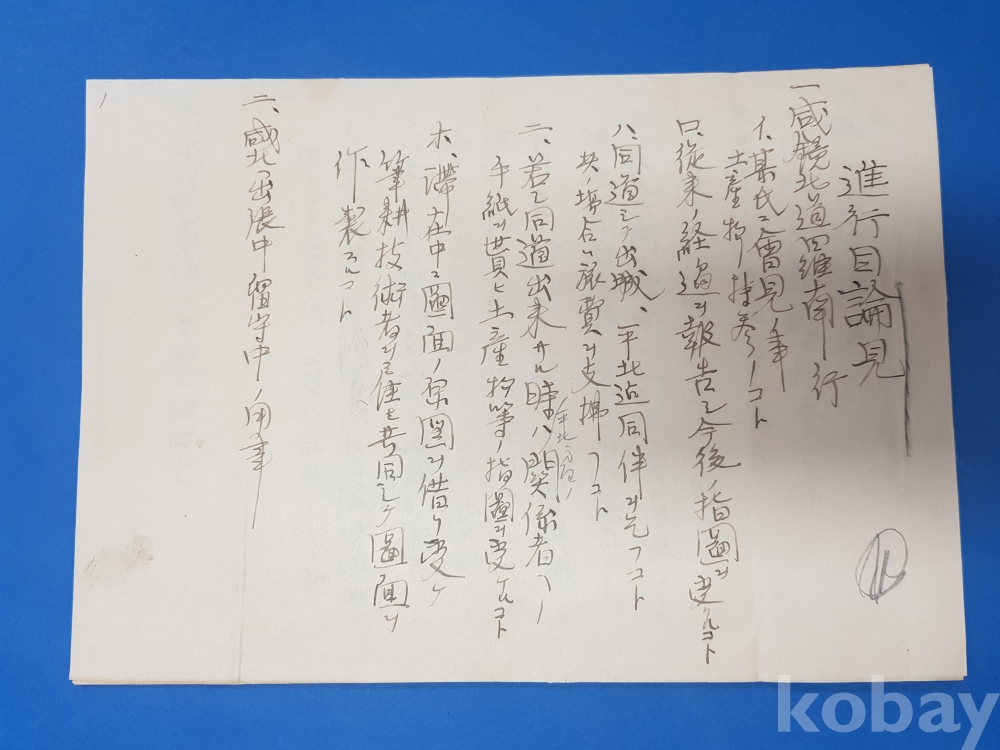 進行目論見
一、咸鏡北道四維南行
イ、某氏ニ會見ノ事
土産物持参ノコト
ロ、從来ノ経過ヲ報告シ今後ノ指圖ヲ受クルコト
ハ、同道シテ出城、平北迄同伴ヲ乞フコト
共ノ場合旅費ヲ支拂フコト
ニ、若シ同道出来サル時ハ関係者ヘノ
手紙ヲ貰ヒ土産物等ノ指圖ヲ受ケルコト
ホ、滞在中ニ圖面ノ原圖ヲ借リ受ケ
筆耕技術者ヲ住セ共同シテ圖面ヲ
作製スルコト
二、咸北ヘ出張中留守中ノ用事
kobay